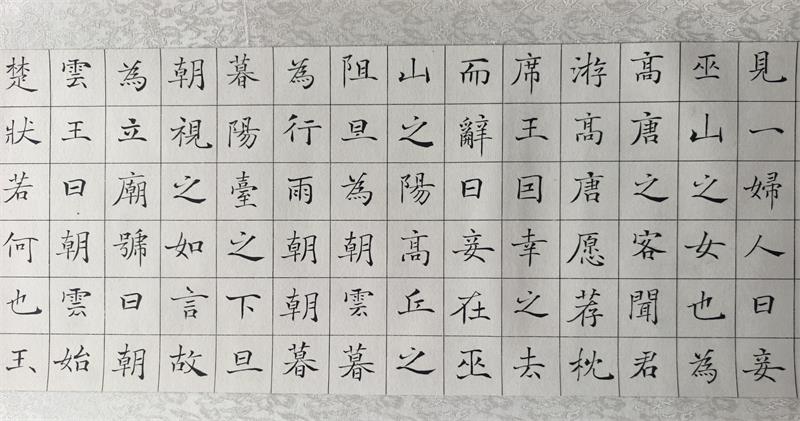 見一婦人曰妾
巫山之女也為
高唐之客聞君
游高唐愿荐枕
席王因幸之去
而辭曰妾在巫
山之陽高丘之
阻旦為朝雲暮
為行雨朝朝暮
暮陽臺之下旦
朝視之如言故
為立廟號曰朝
雲王曰朝雲始
楚狀若何也玉